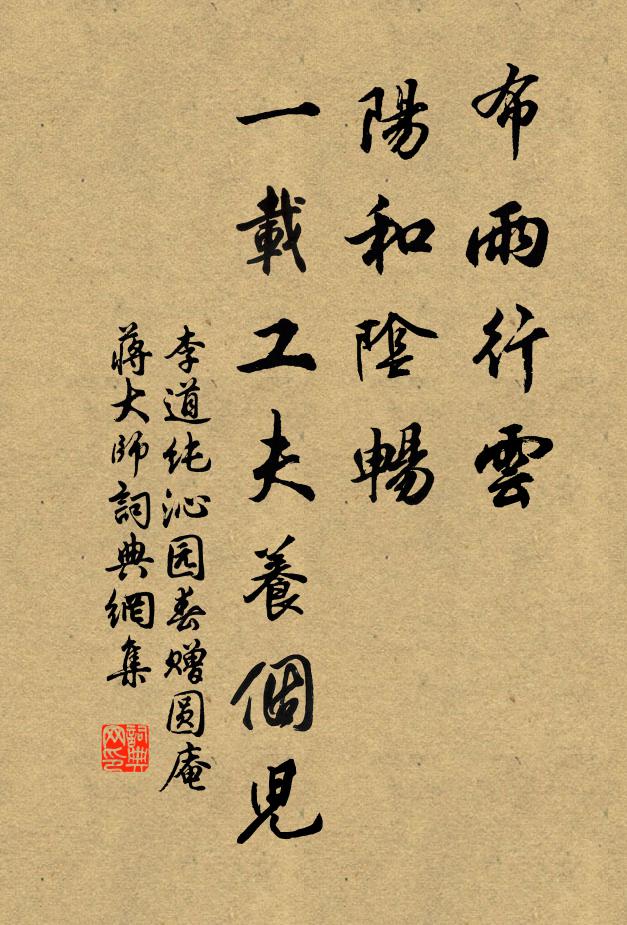 布雨行雲
陽和陰暢
一載工夫養個児
李道纯沁园春赠圆庵
蔣大師詞典網集
詞典
网印